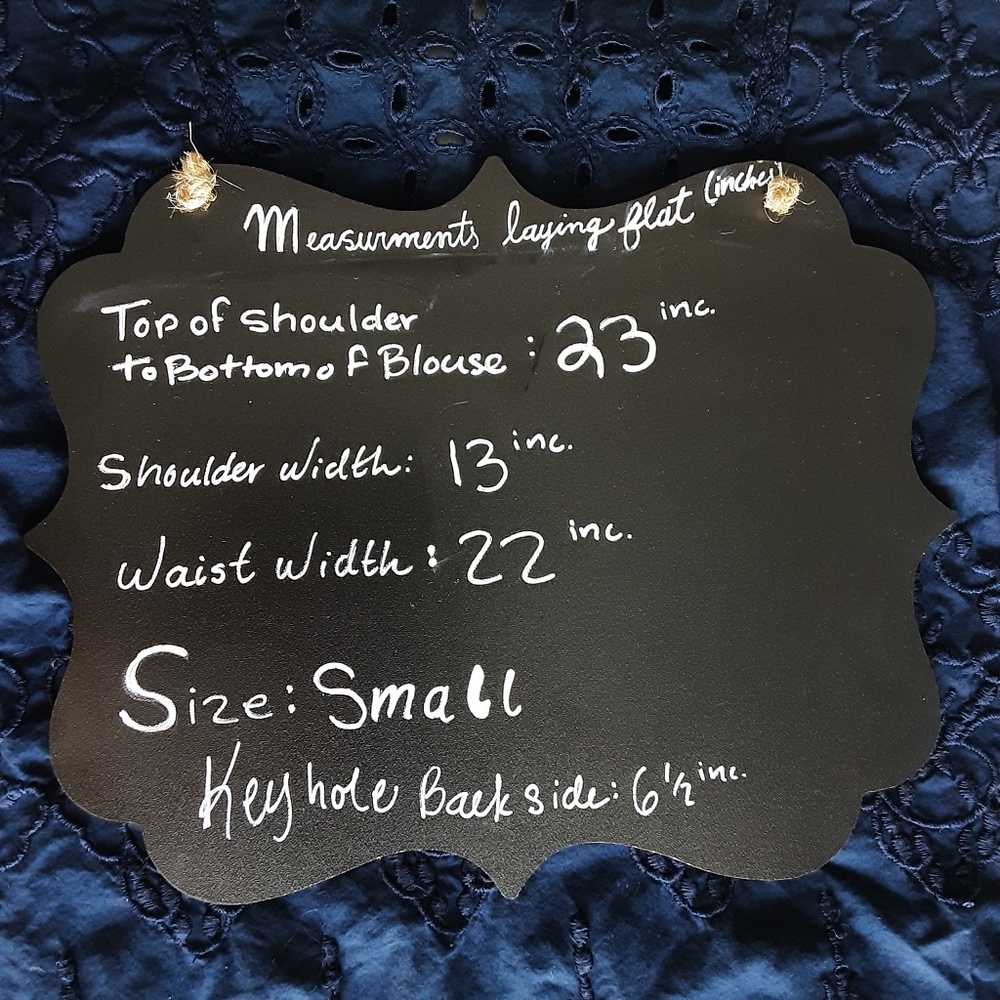 Measurments laying flat (inches)
Top of shoulder
to Bottom of Blouse : 23 inc.
Shoulder width: 13 inc.
Waist Width: 22 inc.
Size: Small
Keyhole Back side: 6 1/2 inc.